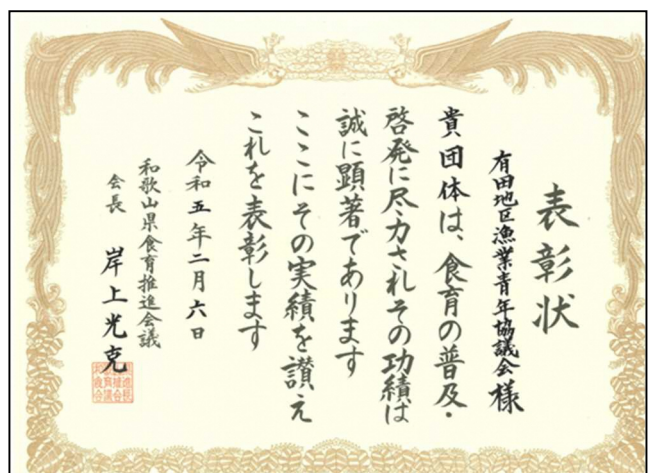 表彰状
有田地区漁業青年協議会様
貴団体は、食育の普及・
啓発に尽力されその功績は
誠に顕著であります
ここにその実績を讃え
これを表彰します
令和五年二月六日
和歌山県食育推進会議
会長 岸上光克